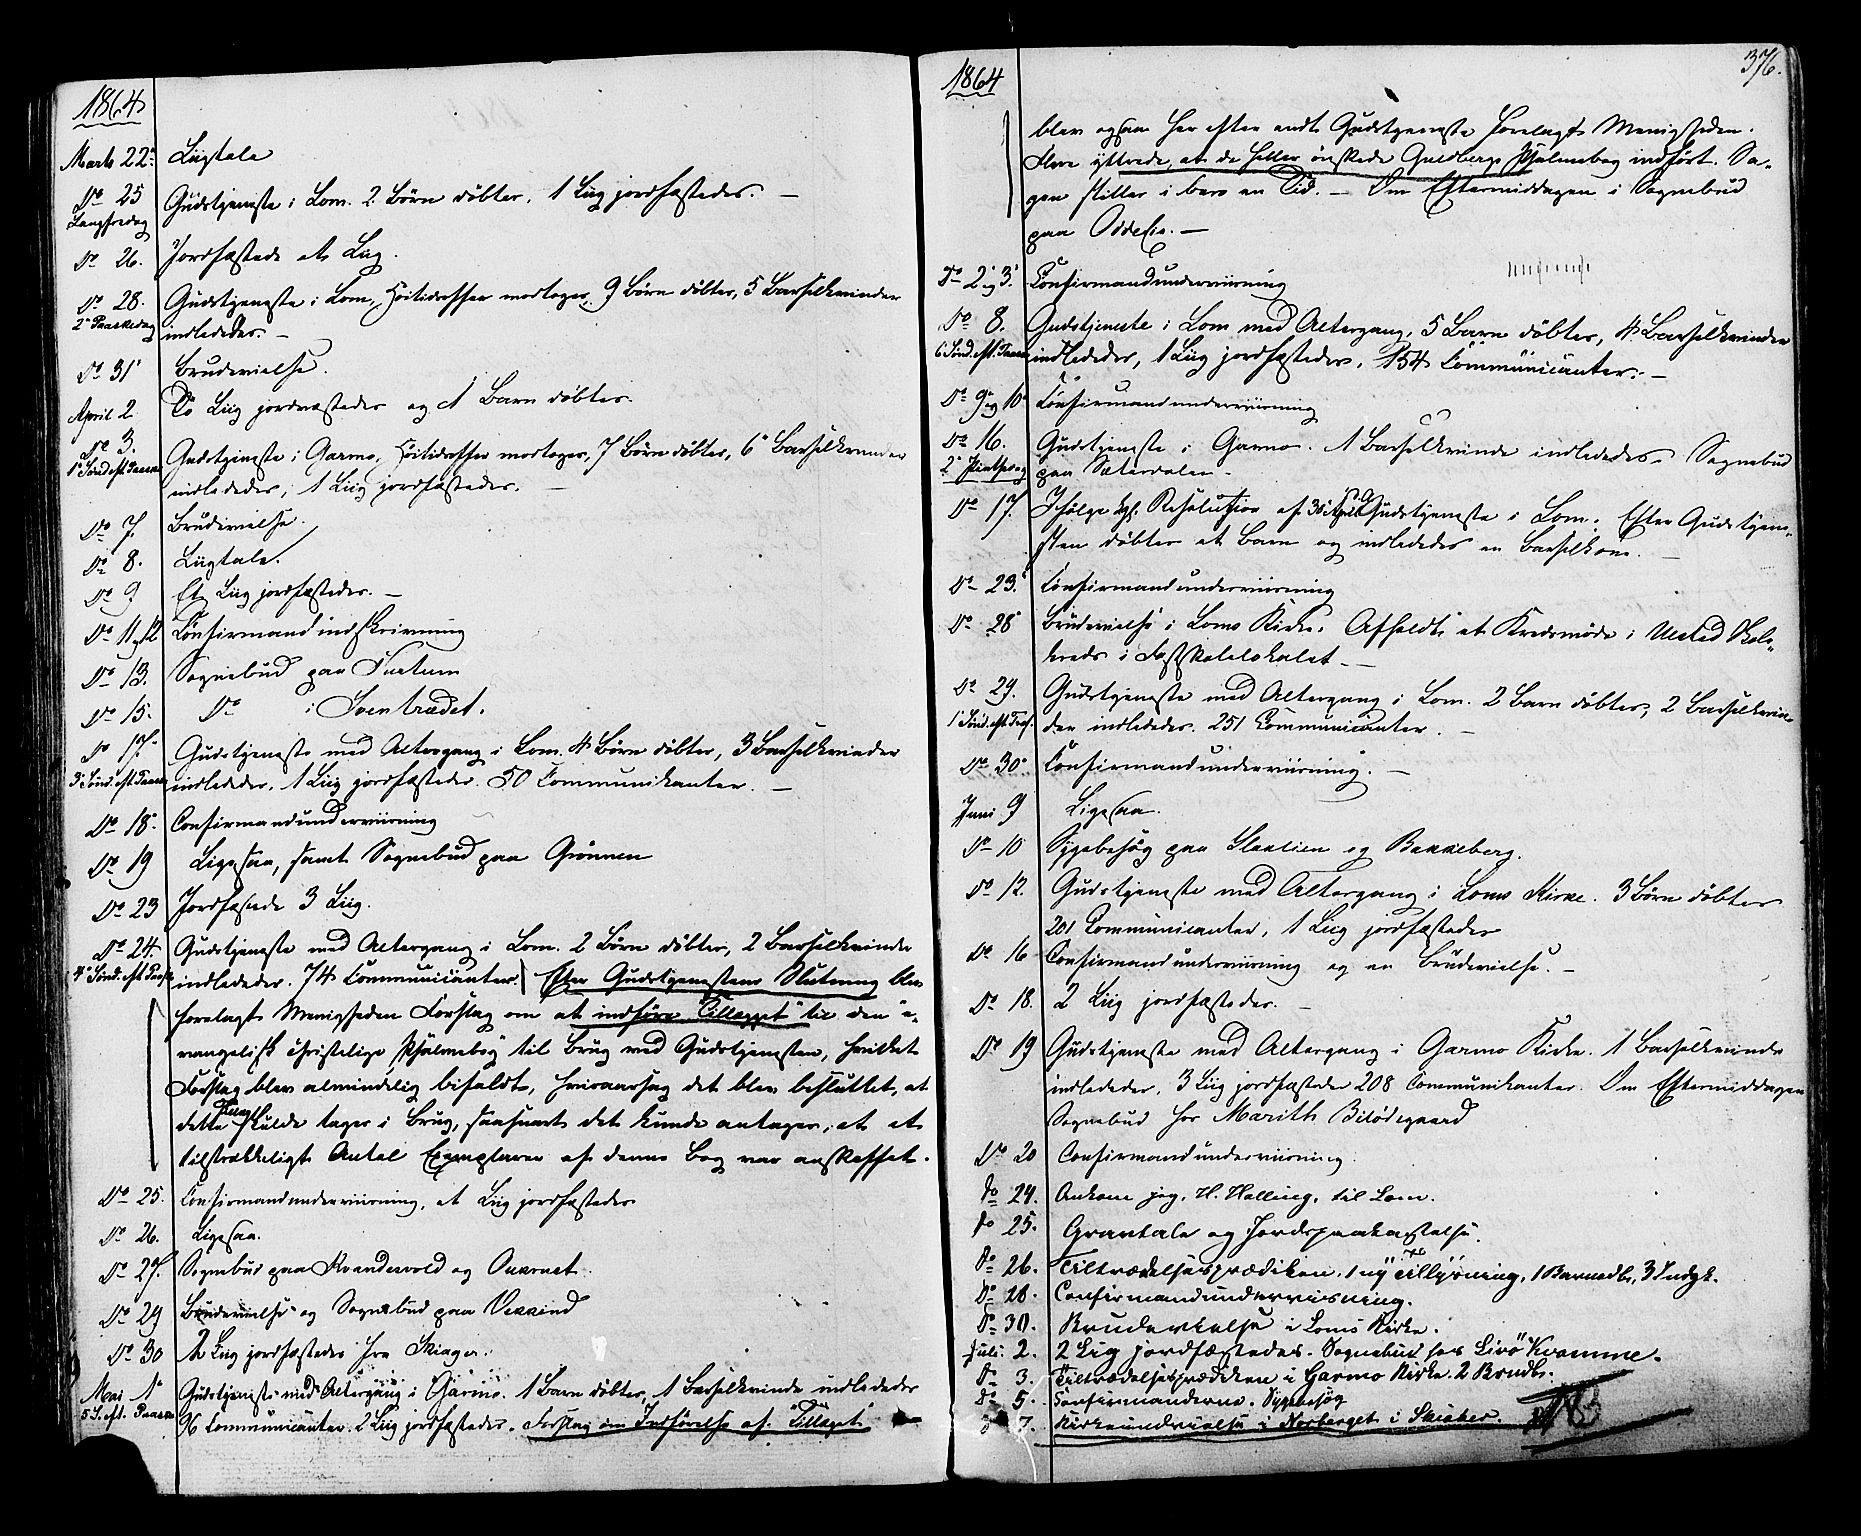 1864
Marts 22de Liigtale
Do 25 Gudstjeneste i Lom. 2 Børn døbtes. 1 Liig jordfæstedes. —
Langfredag
Do 26. Jordfæstede et Liig.
Do 28. Gudstjeneste i Lom, Høitidsoffer modtoges, 9 Børn døbtes, 5 Barselkvinder
2 Paaskedag indledes. —
Do 31 Brudevielse.
April 2. To Liig jordfæstedes og 1 Barn døbtes.
Do 3. Gudstjeneste i Garmo, Høitidsoffer modtoges, 7 Børn døbtes, 6 Barselkvinder
1 Sønd. eft. Paaske indlededes, 1 Liig jordfæstedes. —
Do 7. Brudevielse.
Do 8. Liigtale.
Do 9 Et Liig jordfæstedes. —
Do 11 og 12 Confirmandindskrivning
Do 13. Sognebud paa Furtum
Do 15. Do i Sventrædet.
Do 17. Gudstjeneste med Altergang i Lom. 4 Børn døbtes, 3 Barselkvinder
3 Sønd. eft. Paaske indlededes. 1 Liig jordfæstedes. 50 Communikanter. —
Do 18. Confirmandunderviisning
Do 19 Ligesaa, samt Sognebud paa Grønnen
Do 23 Jordfæstede 3 Liig.
Do 24. Gudstjeneste med Altergang i Lom. 2 Børn døbtes, 2 Barselkvinder
4 Sønd. eft. Paaske indlededes. 74 Communicanter. Efter Gudstjenestens Slutning blev
forelagt Menigheden Forslag om at indføre "Tillægget" til den "e-
vangelisk christelige Psalmebog" til Brug ved Gudstjenesten, hvilket
Forslag blev almindelig bifaldt, hvisaarsag det blev besluttet, at
dette skulde tages i Brug, saasnart det kunde antages, at et
tilstrækkeligt Antal Exemplarer af denne Bog var anskaffet.
Do 25. Confirmandunderviisning, et Liig jordfæstedes
Do 26. Ligesaa.
Do 27. Sognebud paa Kvandesvold og
Do 29 Brudevielse og Sognebud paa
Do 30 2 Liig jordfæstedes fra Skiager.
Mai 1 Gudstjeneste med Altergang i Garmo. 1 Barn døbtes, 1 Barselkvinde indlededes
5 S. eft. Paaske 96 Communicanter. 2 Liig jordfæstedes. Forslag om Indførelse af "Tillæget"
1864
376.
blev ogsaa her efter endt Gudstjeneste forelagt Menigheden.
Flere yttrede, at de heller ønskede Guldbergs Psalmebog indført. Sa-
gen stilles i bero en Tid. — Om Eftermiddagen i Sognebud
paa
Do 2 og 3. Confirmandunderviisning
Do 8. Gudstjeneste i Lom med Altergang, 5 Børn døbtes, 4 Barselkvinder
6 Sønd. eft. Paaske indlededes, 1 Liig jordfæstedes. 154 Communicanter. —
Do 9 og 10 Confirmandunderviisning
Do 16. Gudstjeneste i Garmo. 1 Barselkvinde indlededes. Sognebud
2 Pintsedag paa Sæterdalen.
Do 17. Ifølge kgl. Resolution af 30 April Gudstjeneste i Lom. Efter Gudstjene-
sten døbtes et Barn og indlededes en Barselkone. —
Do 23. Confirmandunderviisning
Do 28 Brudevielse i Loms Kirke. Afholdt et Kredsmøde i Ulstad Skole-
kreds i Fastskolelokalet —
Do 29. Gudstjeneste med Altergang i Lom. 2 Børn døbtes, 2 Barselkvin-
1 Sønd. eft. Tref. der indlededes. 251 Communicanter. —
Do 30 Confirmandunderviisning. —
Juni 9 Ligesaa.
Do 10 Sygebesøg paa Slaalien og Bakkeberg.
Do 12. Gudstjeneste med Altergang i Loms Kirke. 3 Børn døbtes
201 Communicanter, 1 Liig jordfæstedes
Do 16 Confirmandunderviisning og en Brudevielse. —
Do 18. 2 Liig jordfæstedes. —
Do 19 Gudstjeneste med Altergang i Garmo Kirke. 1 Barselkvinde
indlededes, 3 Liig jordfæstedes 208 Communikanter. Om Eftermiddagen
Sognebud hos Marith Biløedegaard
Do 20 Confirmandunderviisning.
Do 24. Ankom jeg, H. Halling, til Lom.
Do 25. Gravtale og Jordspaakastelse.
Do 26. Tiltrædelsesprædiken. 1 ny Tillysning, 1 Barnedb, 3 Indgk.
Do 28. Confirmandundervisning.
Do 30. Brudevielse i Loms Kirke.
Juli 2. 2 Lig jordfæstedes. Sognebud hos Livø Kvamme.
Do 3. Tiltrædelsesprædiken i Garmo Kirke. 2 Barndb.
Do 5. Confirmanderne. Sygebesøg
Do 7. Kirkeindvielse i Norberget i Skiaker.